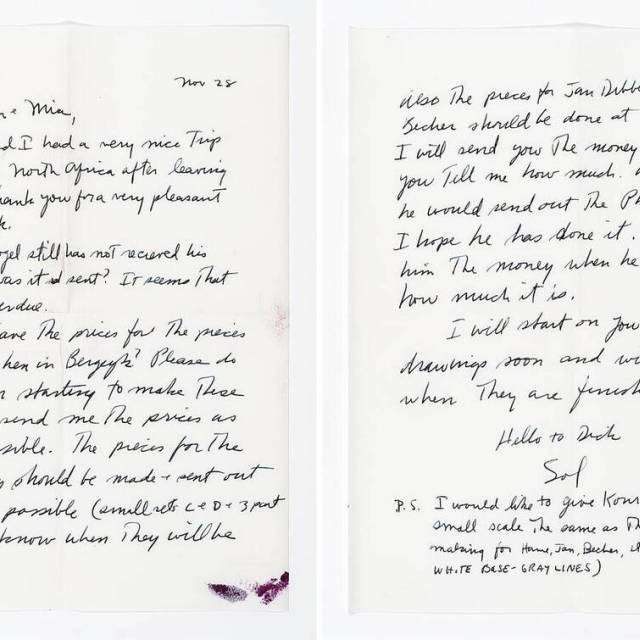 Nov 28
+ Mia,
d I had a very nice Trip
North Africa after leaving
hank you for a very pleasant
k.
gel still has not recieved his
was it sent? It seems That
erdue.
ave The prices for The pieces
hen in Bergeyk? Please do
starting to make These
send me The prices as
sible. The pieces for The
should be made + sent out
possible (small sets C + D + 3 part
know when They will be
Also The pieces for Jan Dibbe
Becher should be done at
I will send you The money
you Tell me how much.
he would send out The Ph
I hope he has done it.
him The money when he
how much it is.
I will start on you
drawings soon and wi
when They are finish
Hello to Dick
Sol
P.S. I would like to give Konr
small scale The same as Th
making for Hanne, Jan, Becher,
WHITE BASE-GRAY LINES)